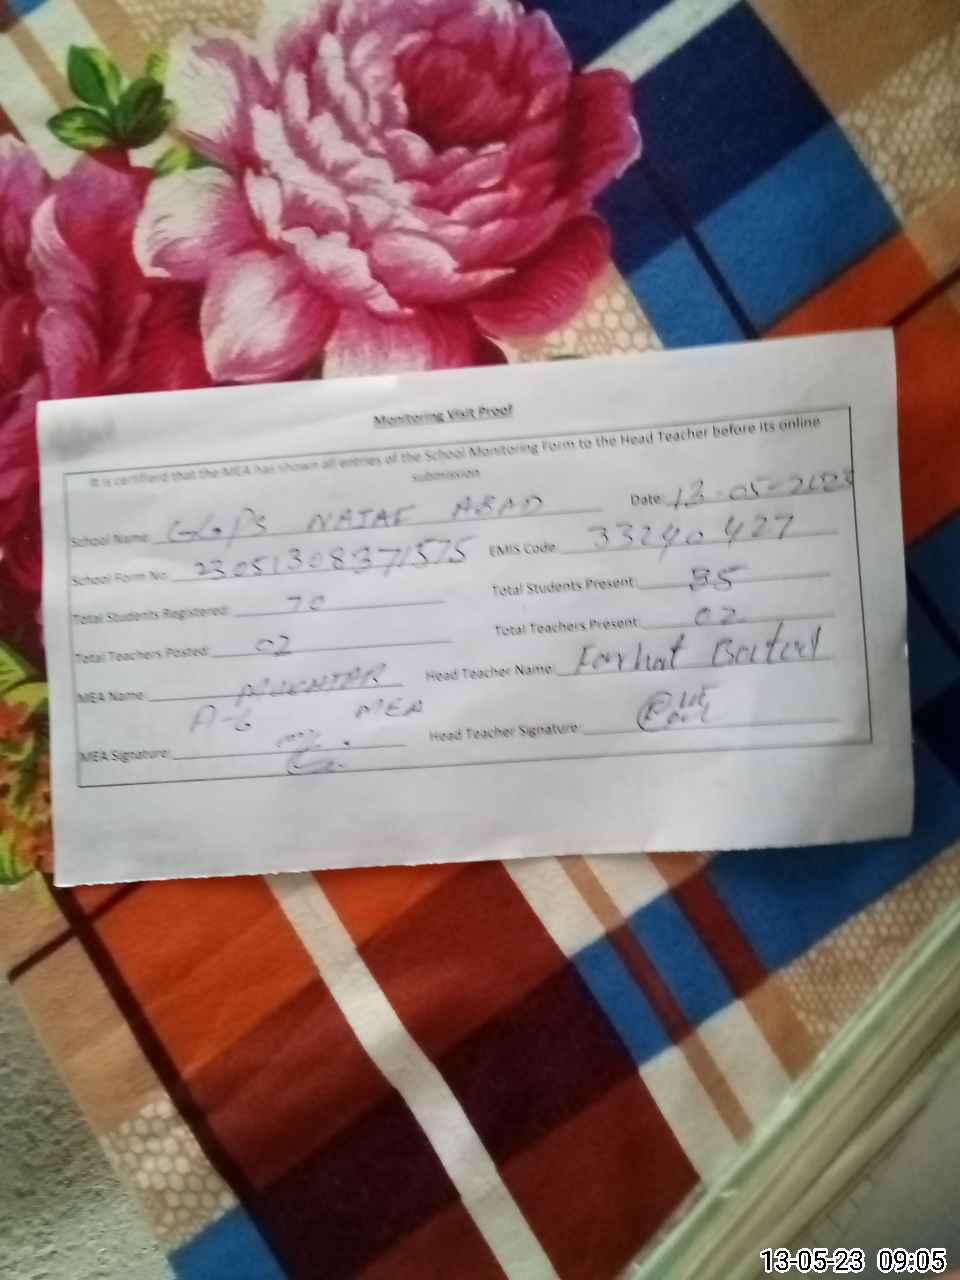 Monitoring Visit Proof
It is certifierd that the MEA has shown all entries of the School Monitoring Form to the Head Teacher before its online
submission
School Name: GGPS NAJAF ABAD Date: 13-05-2023
School Form No: 23051308371575 EMIS Code: 33240427
Total Students Registered: 70 Total Students Present: 35
Total Teachers Posted: 02 Total Teachers Present: 02
MEA Name: MUKHTAR Head Teacher Name: Farhat Batool
MEA
MEA Signature: Head Teacher Signature:
13-05-23 09:05